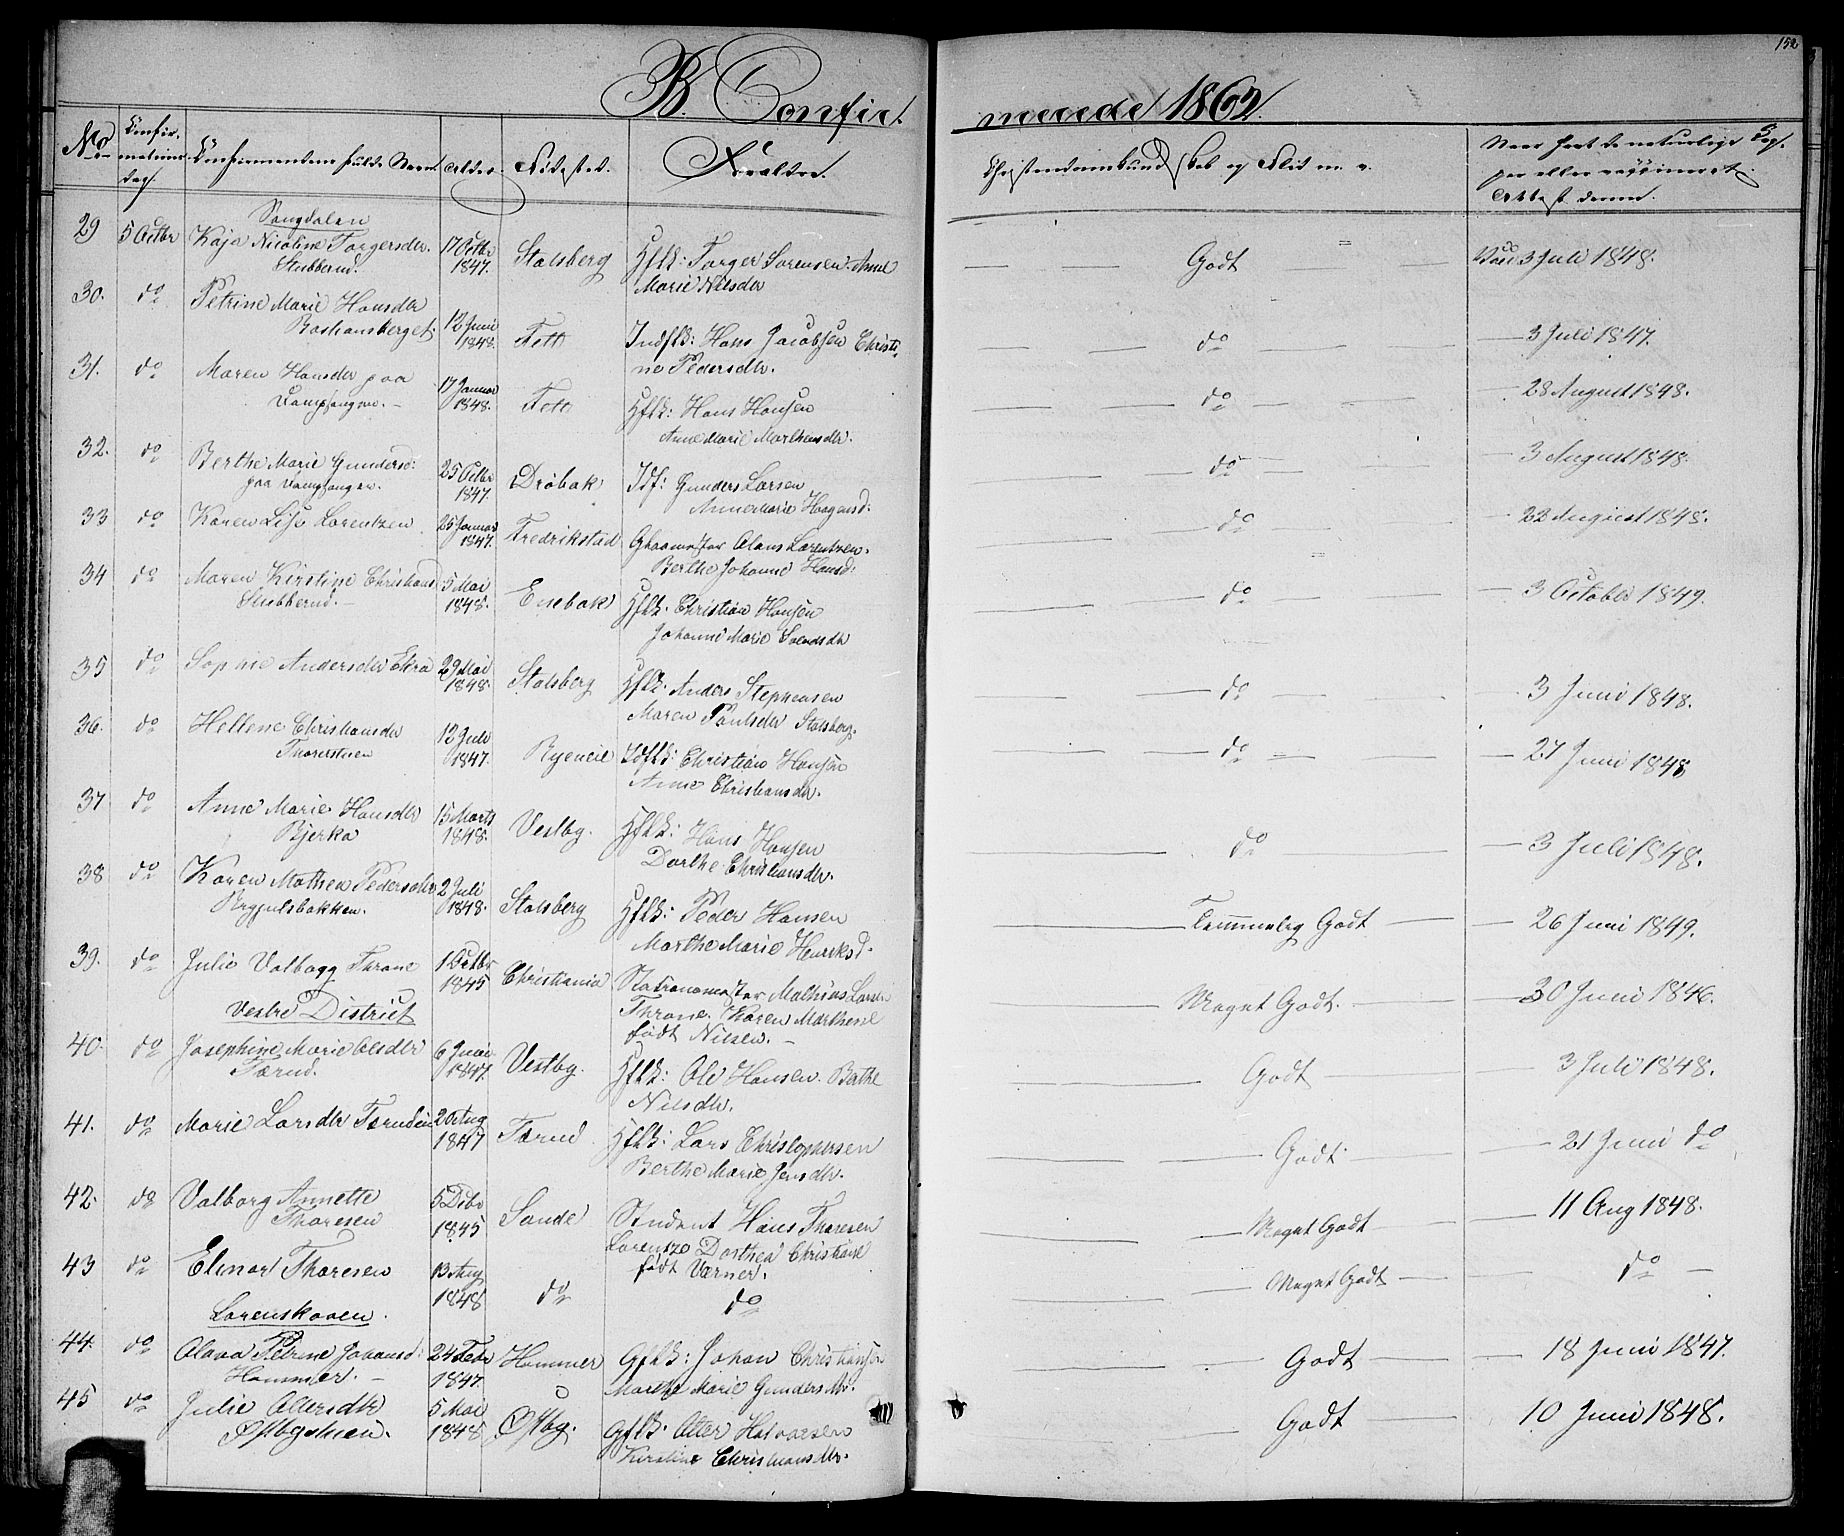 152
B. Confir-
merede 1862.
No
Confir-
mations
dag.
Confirmandens fulde Navn
Alder
Fødested.
Forældre.
Christendomskundskab og Flid m. v.
Naar havt de naturlige Kop-
per eller vaccineret.
Attest derom.
Sangdalen
29 5 Octbr Kaja Nicoline Torgersdtr. 17 Octbr Stalsberg Hflk: Torger Sørensen. Anne Godt 3 Juli 1848.
Stubberud. 1847. Marie Nilsdtr
30. do Petrine Marie Hansdtr 12 Juni Fett Indflk: Hans Jacobsen Christi- do 3 Juli 1847.
Bashansberget. 1848. ne Pedersdtr.
31. do Maren Hansdtr paa 17 Januar Fett Hflk: Hans Hansen do 28 August 1848.
1848. Anne Marie Mathensdtr.
32. do Berthe Marie Gundersd: 25 Octbr Drøbak Idf: Gunders Larsen do 3 August 1848.
paa 1847. Anne Marie Haagensd:
33 do Karen Lise Lorentzen 25 Januar Fredrikstad Olaus Lorentzen. do 22 August 1848.
1847. Berthe Johanne Hansd:
34 do Maren Kirstine Christiansd 5 Mai Enebak Hflk. Christian Hansen do 3 October 1849.
Stubberud. 1848. Johanne Marie Svendsdtr
35 do Sophie Andersdtr Ekra 29 Mai Stalsberg Hflk. Anders Stephensen do 3 Juni 1848.
1848. Maren Paulsdtr Stalsberg.
36. do Hellene Christiansdtr 12 Juli Idflk: Christian Hansen do 27 Juni 1848
1847. Anne Christiansdtr.
37 do Anne Marie Hansdtr 15 Marts Vestby. Hflk: Hans Hansen do 3 Juli 1848.
Bjerka 1848. Dorthe Christiansdtr.
38 do Karen Mathea Pedersdtr 2 Juli Stalsberg Hflk: Peder Hansen Temmelig Godt 26 Juni 1849.
1848. Marthe Marie Henriksd.
39. do Julie Valborg Throne 1 Octbr Christiania Mathias Larsen Meget Godt. 30 Juni 1846.
1845 Throne. Karen Marthene
født Nilsen.
Vestre District
40. do Josephine Marie Olsdtr 6 Juni Vestby. Hflk: Ole Hansen. Berthe Godt 3 Juli 1848.
Tærud. 1847. Nilsdtr.
41. do Marie Larsdtr Tærudeie 20 Aug Tærud Hflk: Lars Christophersen Godt 21 Juni do
1847 Berthe Marie Jensdtr.
42. do Valborg Annette 5 Dcbr Sande Student Hans Thoresen Meget Godt 11 Aug 1848.
Thoresen 1845 Lorentze Dorthea Christiane
født Værner.
43 do Elinor Thoresen 13 Aug do do Meget Godt do
1848
Lørenskoven.
44. do Olava Petrine Johansd: 24 Febr Hammer Gflk: Johan Christiansen Godt 18 Juni 1847.
Hammer. 1847. Marthe Marie Gundersdtr.
45 do Julie Ottersdtr 5 Mai Østby. Gflk. Otter Halvorsen Godt 10 Juni 1848.
1848 Kirstine Christiansdtr.